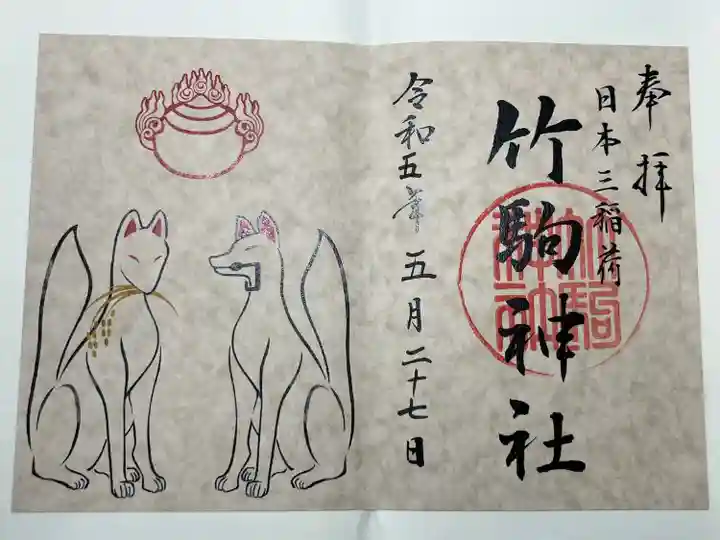 奉拝
日本三稲荷
竹駒神社
竹駒神社
令和五年五月二十七日